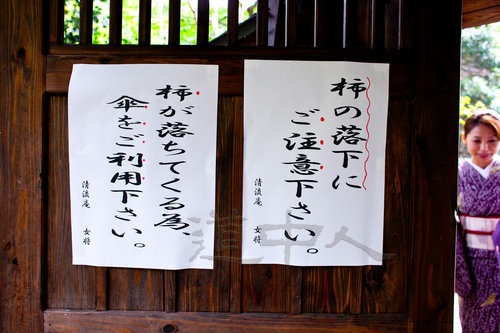 柿の落下に
ご注意下さい。
清流庵 女将
柿が落ちてくる為、
傘をご利用下さい。
清流庵 女将
道中人